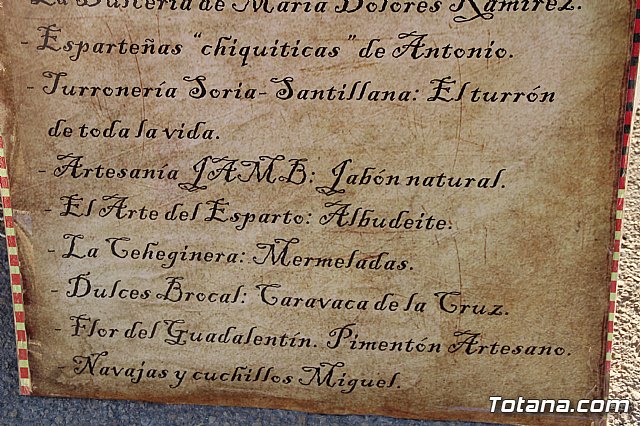 La Dulcería de María Dolores Ramírez.
- Esparteñas "chiquiticas" de Antonio.
- Turronería Soria-Santillana: El turrón
de toda la vida.
- Artesanía JAMB: Jabón natural.
- El Arte del Esparto: Albudeite.
- La Ceheginera: Mermeladas.
- Dulces Brocal: Caravaca de la Cruz.
- Flor del Guadalentín. Pimentón Artesano.
- Navajas y cuchillos Miguel.
Totana.com